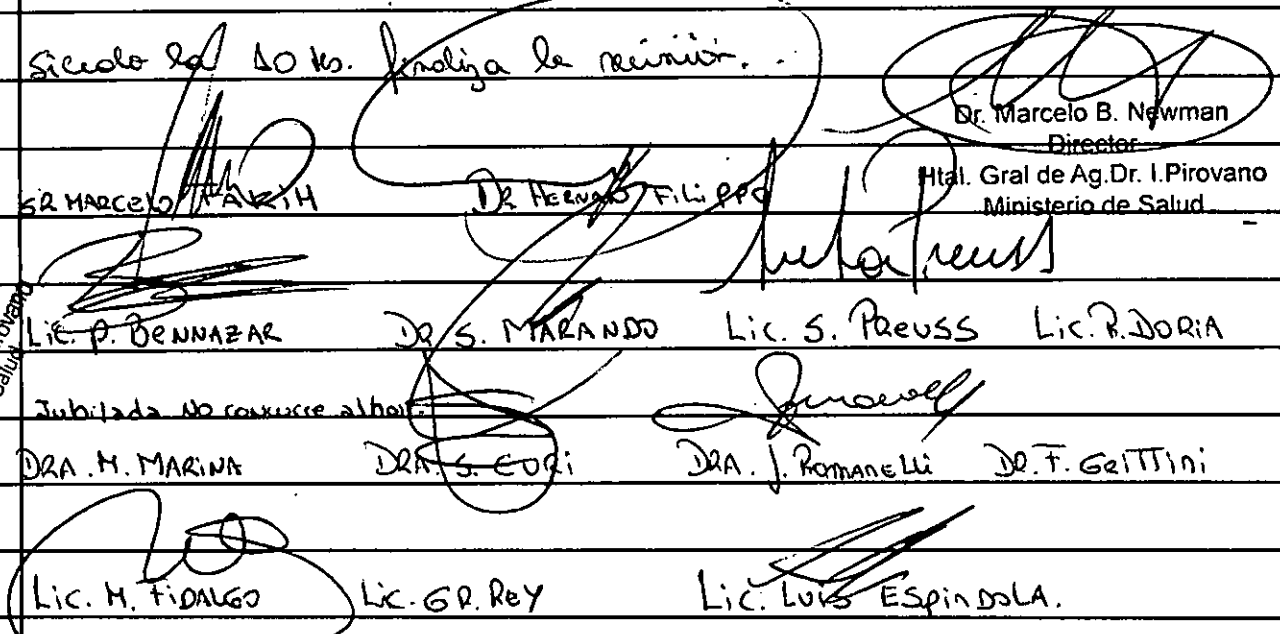 siendo las 10 hs. finaliza la reunión.
Dr. Marcelo B. Newman
Director
Htal. Gral de Ag.Dr. I.Pirovano
Ministerio de Salud
SR MARCELO DR HERNAN FILIPPO
Lic. P. BENNAZAR DR S. MARANDO Lic. S. PREUSS Lic. R. DORIA
Jubilada No concurre al
DRA. M. MARINA DRA. S. EURI DRA. J. ROMANELLI DR. F. GRITTINI
Lic. M. FIDALGO Lic. GR. REY Lic. LUIS ESPINDOLA.